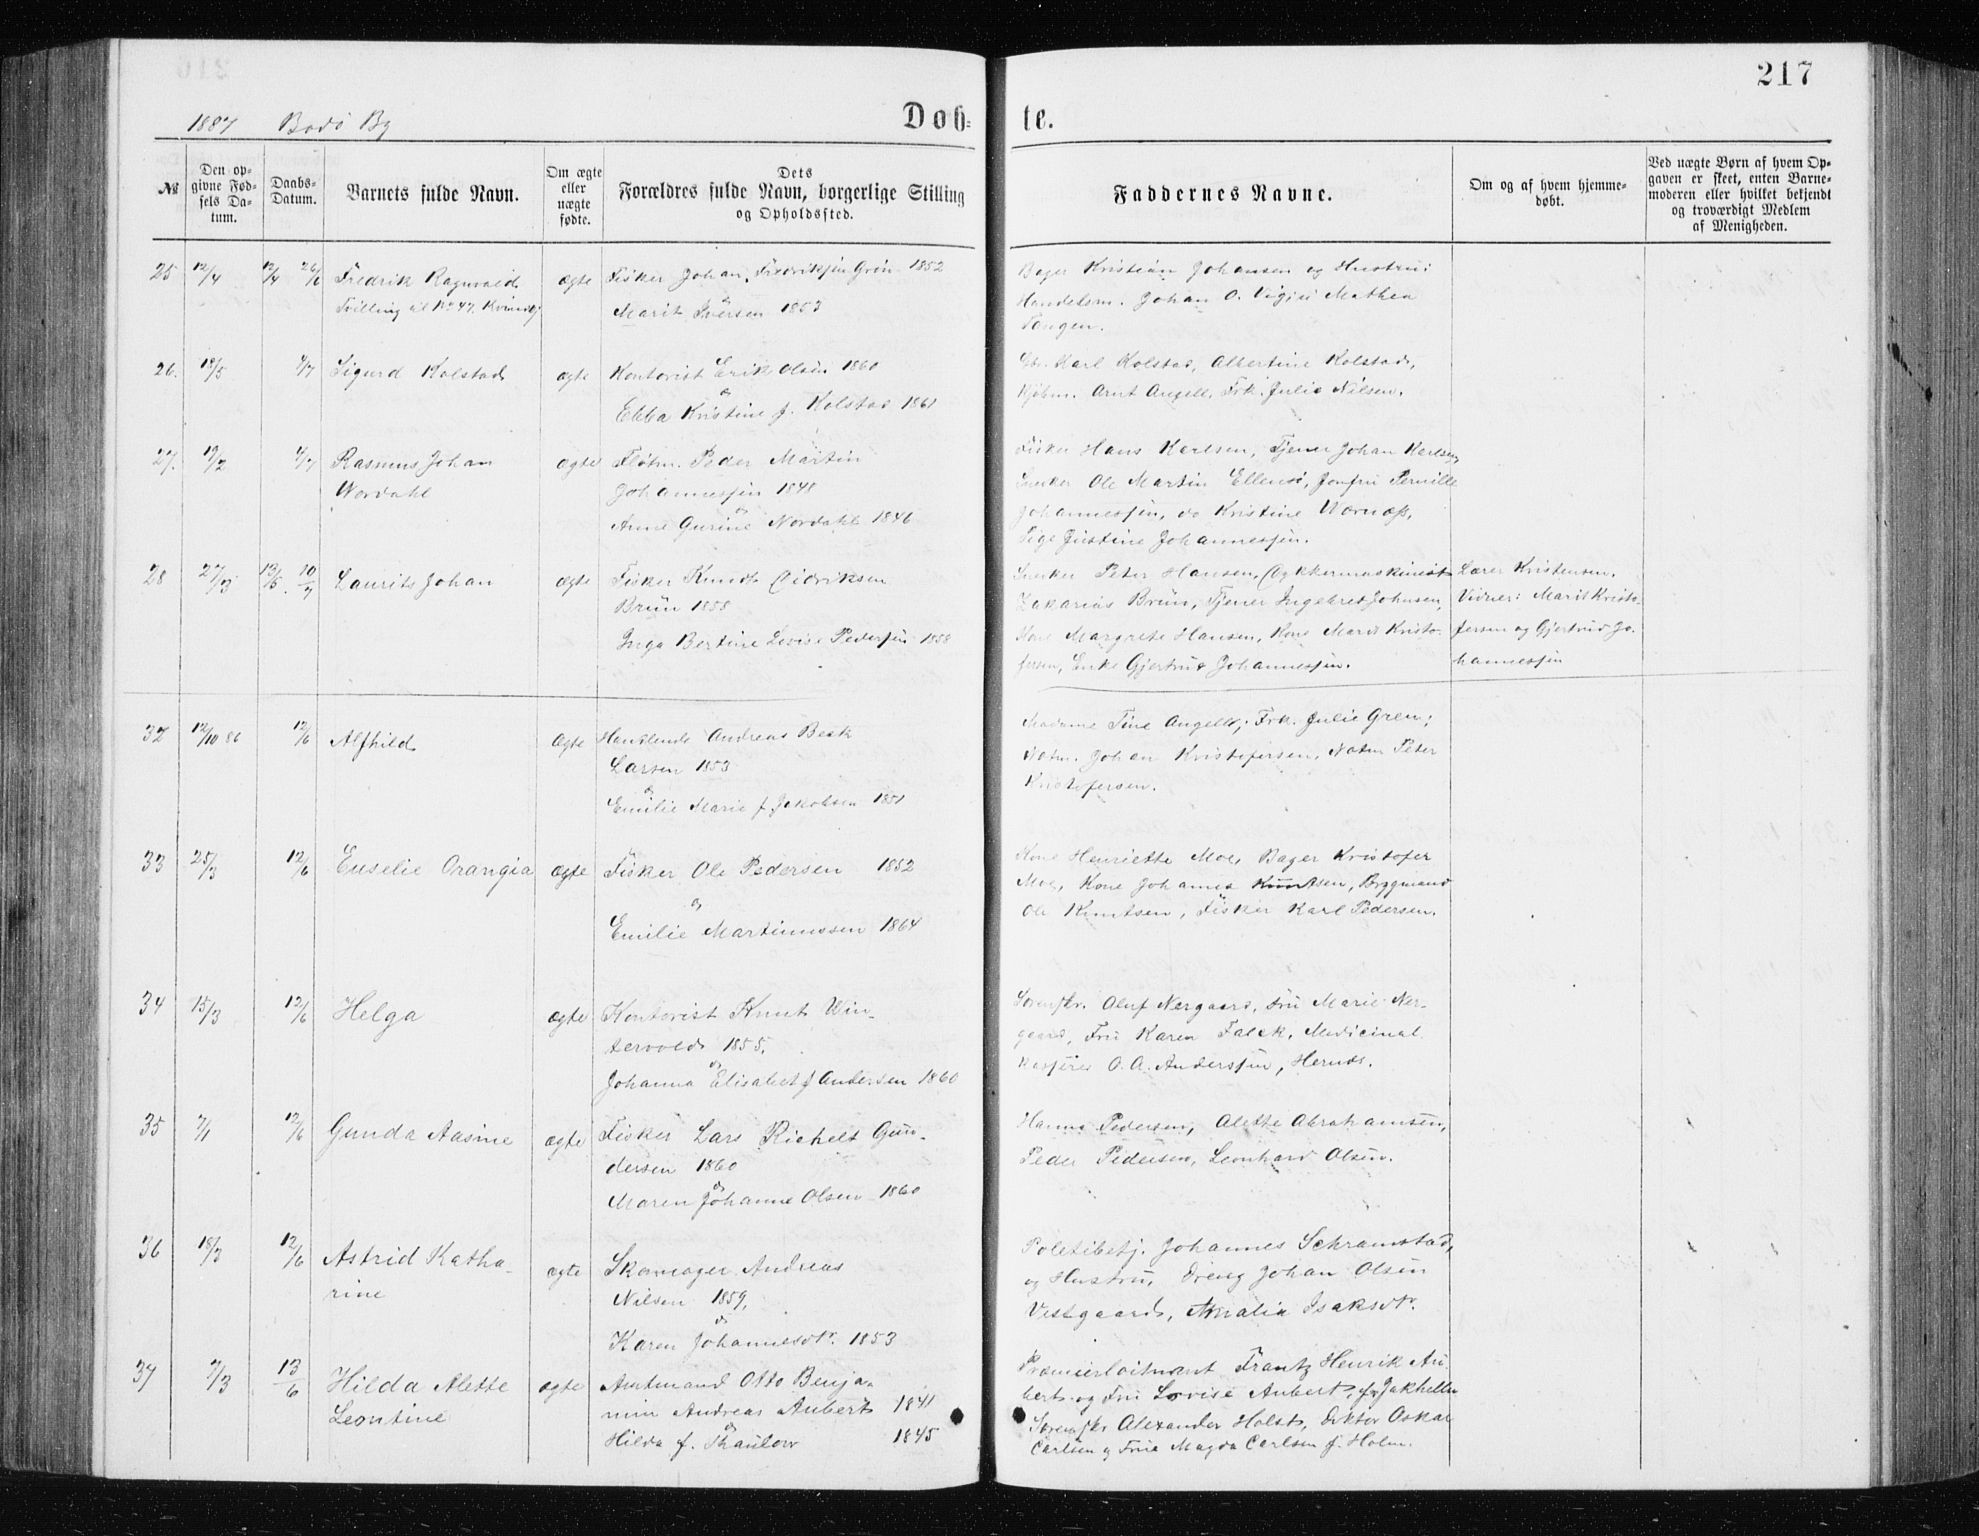 217
1887 Bodö By
Döb-
te.
№
Den op-
givne Fød-
sels Da-
tum.
Daabs-
Datum.
Barnets fulde Navn.
Om ægte
eller
uægte
fødte.
Dets
Forældres fulde Navn, borgerlige Stilling
og Opholdssted.
Faddernes Navne.
Om og af hvem hjemme-
døbt.
Ved uægte Børn af hvem Op-
gaven er skeet, enten Barne-
moderen eller hvilket bekjendt
og troværdigt Medlem
af Menigheden.
25 12/4 12/4 26/6 Fredrik Ragnvald ægte Fisker Johan Fredriksen Grön 1852
Tvilling til No 47. Kvindkj
og
Marit Iversen 1853
Bager Kristian Johansen og Hustru;
Handelsm. Johan O. Mathea
Tangen.
26. 18/5 4/7 Sigurd Kolstad ægte Kontorist Erik Olsen 1860
og
Ebba Kristine f. Kolstad 1861
Karl Kolstad, Albertine Kolstad,
Kjöbm. Arnt Angell, Frk. Julie Nilsen.
27. 19/2 4/7 Rasmus Johan ægte Flötm. Peder Martin
Nordahl
Johannessen 1848
og
Anne Gurine Nordahl 1846
Fisker Hans Karlsen, Tjener Johan Karlsen,
Snerker Ole Martin Ellensö, Jomfru Pernille
Johannessen, do Kristine Wornæss,
Pige Justine Johannessen.
28 27/3 13/5. 10/7 Laurits Johan ægte Fisker Knudt Didriksen
Brün 1858
Inga Bertine Lovise Pedersen 1858
Snerker Peter Hansen, Dykkermaskinist
Zakarias Brün, Tjener Ingebret Johnsen,
Kone Margrete Hansen, Kone Marit Kristo-
fersen, Enke Gjertrud Johannessen.
Lærer Kristensen.
Vidner: Marit Kristo-
fersen og Gjertrud Jo-
hannessen
32 12/10 86 12/6 Alfhild ægte Handlende Andreas Beck
Larsen 1853
og
Emilie Marie f. Jakobsen 1851
Madame Tine Angell, Frk. Julie Gren;
Notm. Johan Kristofersen, Notm Peter
Kristofersen.
33 25/3 12/6 Enselie Orangia ægte Fisker Ole Pedersen 1852
og
Emilie Martinussen 1864
Kone Henriette Moe, Bager Kristofer
Moe, Kone Johanna Knutsen, Bryggmand
Ole Knutsen, Fisker Karl Pedersen.
34 15/3 12/6 Helga ægte Kontorist Knut Win-
tervold 1855,
og
Johanna Elisabet f Andersen 1860
Sorenskr. Oluf Nergaard, Fru Marie Ner-
gaard, Fru Karen Falck, Medicinal
kasserer O. A. Anderssen, Hernds.
35 7/1 12/6 Gunda Aasine ægte Fisker Lars Richelt Gun-
dersen 1860
og
Maren Johanne Olsen 1860
Hanna Pedersen, Alette Abrahamsen,
Peder Pedersen, Leonhard Olsen.
36 18/3 12/6 Astrid Katha- ægte Skomager Andreas
rine
Nilsen 1859,
og
Karen Johannesdtr. 1853
Poletibetj. Johannes Schramstad,
og Hustru, Dreng Johan Olsen
Vestgaard, Amalia Isaksdtr.
37 7/3 13/6 Hilda Alette ægte Amtmand Otto Benja-
Leontine
min Andreas Aubert 1841
og
Hilda f. Thaulow 1845
Præmierloitnant Frantz Henrik Au-
bert og Fru Lovise Aubert, f. Jakhelln
Sorenskr Alexander Holst, Doktor Oskar
Carlsen og Frue Magda Carlsen f. Holm.